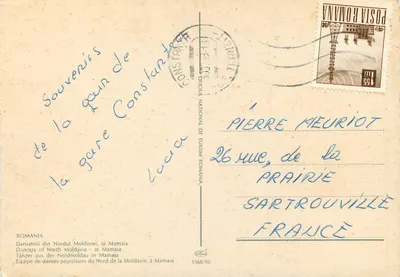 POSTA ROMANA
155
LEI
CONSTANTA
Souvenirs
de la gain de
la gare Constanta
Lucia
PIERRE MEURIOT
26 rue, de la
PRAIRIE
SARTROUVILLE
FRANCE
OFICIUL NATIONAL DE TURISM ROMANIA
ROMANIA
Dansatori din Nordul Moldovei, la Mamaia
Dancers of North Moldavia – at Mamaia
Tänzer aus der Nordmoldau in Mamaia
Équipe de danses populaires du Nord de la Moldavie, à Mamaia